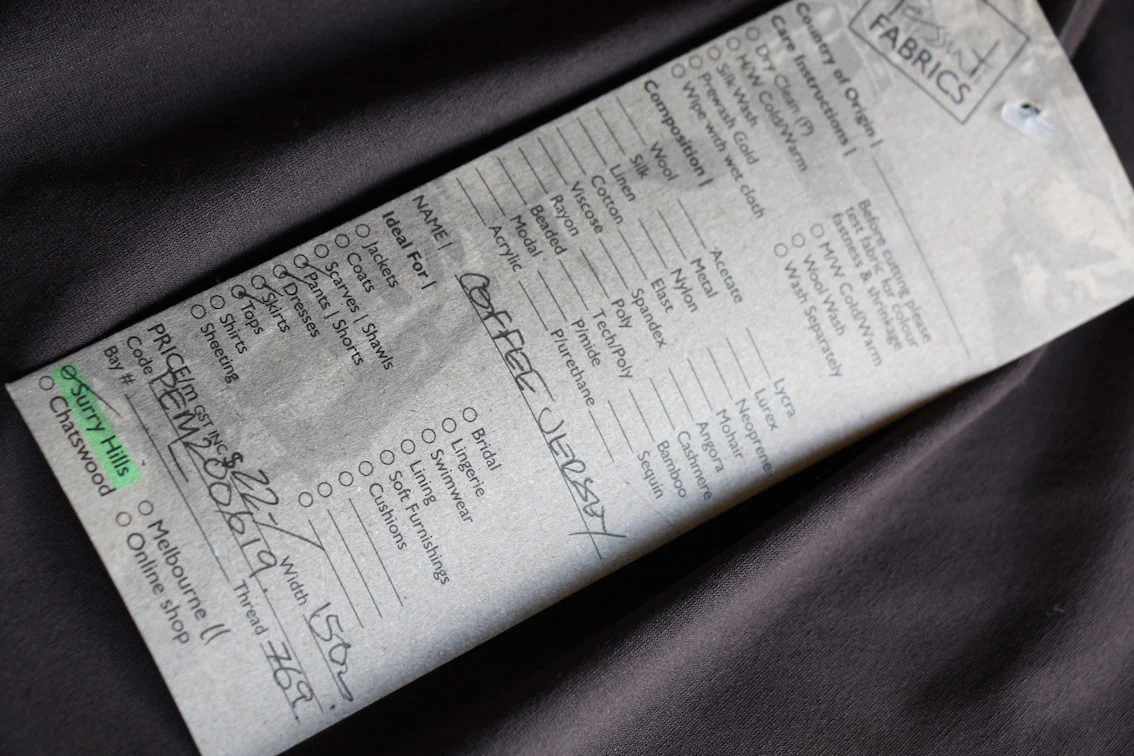 Tessuti
FABRICS
Country of Origin |
Care Instructions |
Before cutting please
test fabric for colour
fastness & shrinkage
Dry Clean (P)
H/W Cold/Warm
Silk Wash
Prewash Cold
Wipe with wet cloth
M/W Cold/Warm
Wool Wash
Wash Separately
Composition |
Wool
Silk
Linen
Cotton
Viscose
Rayon
Beaded
Modal
Acrylic
Acetate
Metal
Nylon
Elast
Spandex
Poly
Tech/Poly
P/mide
P/urethane
Lycra
Lurex
Neoprene
Mohair
Angora
Cashmere
Bamboo
Sequin
NAME | COFFEE JERSEY
Ideal For |
Jackets
Coats
Scarves | Shawls
Pants | Shorts
Dresses
Skirts
Tops
Shirts
Sheeting
Bridal
Lingerie
Swimwear
Lining
Soft Furnishings
Cushions
PRICE/m GST INC. $22-/ Width 150
Code PEM200619. Thread 769.
Bay #.
Surry Hills
Chatswood
Melbourne
Online shop